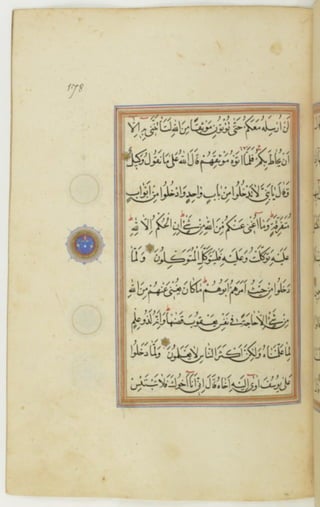 ١٧٨
لَنْ اُرْسِلَهُ مَعَكُمْ حَتّٰى تُؤْتُونِ مَوْثِقًا مِنَ اللّٰهِ لَتَأْتُنَّنِي بِهِ اِلَّا
اَنْ يُحَاطَ بِكُمْ فَلَمَّا اٰتَوْهُ مَوْثِقَهُمْ قَالَ اللّٰهُ عَلٰى مَا نَقُولُ وَكِيلٌ
وَقَالَ يَا بَنِيَّ لَا تَدْخُلُوا مِنْ بَابٍ وَاحِدٍ وَادْخُلُوا مِنْ اَبْوَابٍ
مُتَفَرِّقَةٍ وَمَا اُغْنِي عَنْكُمْ مِنَ اللّٰهِ مِنْ شَيْءٍ اِنِ الْحُكْمُ اِلَّا لِلّٰهِ
عَلَيْهِ تَوَكَّلْتُ وَعَلَيْهِ فَلْيَتَوَكَّلِ الْمُتَوَكِّلُونَ وَلَمَّا
دَخَلُوا مِنْ حَيْثُ اَمَرَهُمْ اَبُوهُمْ مَا كَانَ يُغْنِي عَنْهُمْ مِنَ اللّٰهِ
مِنْ شَيْءٍ اِلَّا حَاجَةً فِي نَفْسِ يَعْقُوبَ قَضٰيهَا وَاِنَّهُ لَذُو عِلْمٍ
لِمَا عَلَّمْنَاهُ وَلٰكِنَّ اَكْثَرَ النَّاسِ لَا يَعْلَمُونَ وَلَمَّا دَخَلُوا
عَلٰى يُوسُفَ اٰوٰى اِلَيْهِ اَخَاهُ قَالَ اِنِّي اَنَا اَخُوكَ فَلَا تَبْتَئِسْ